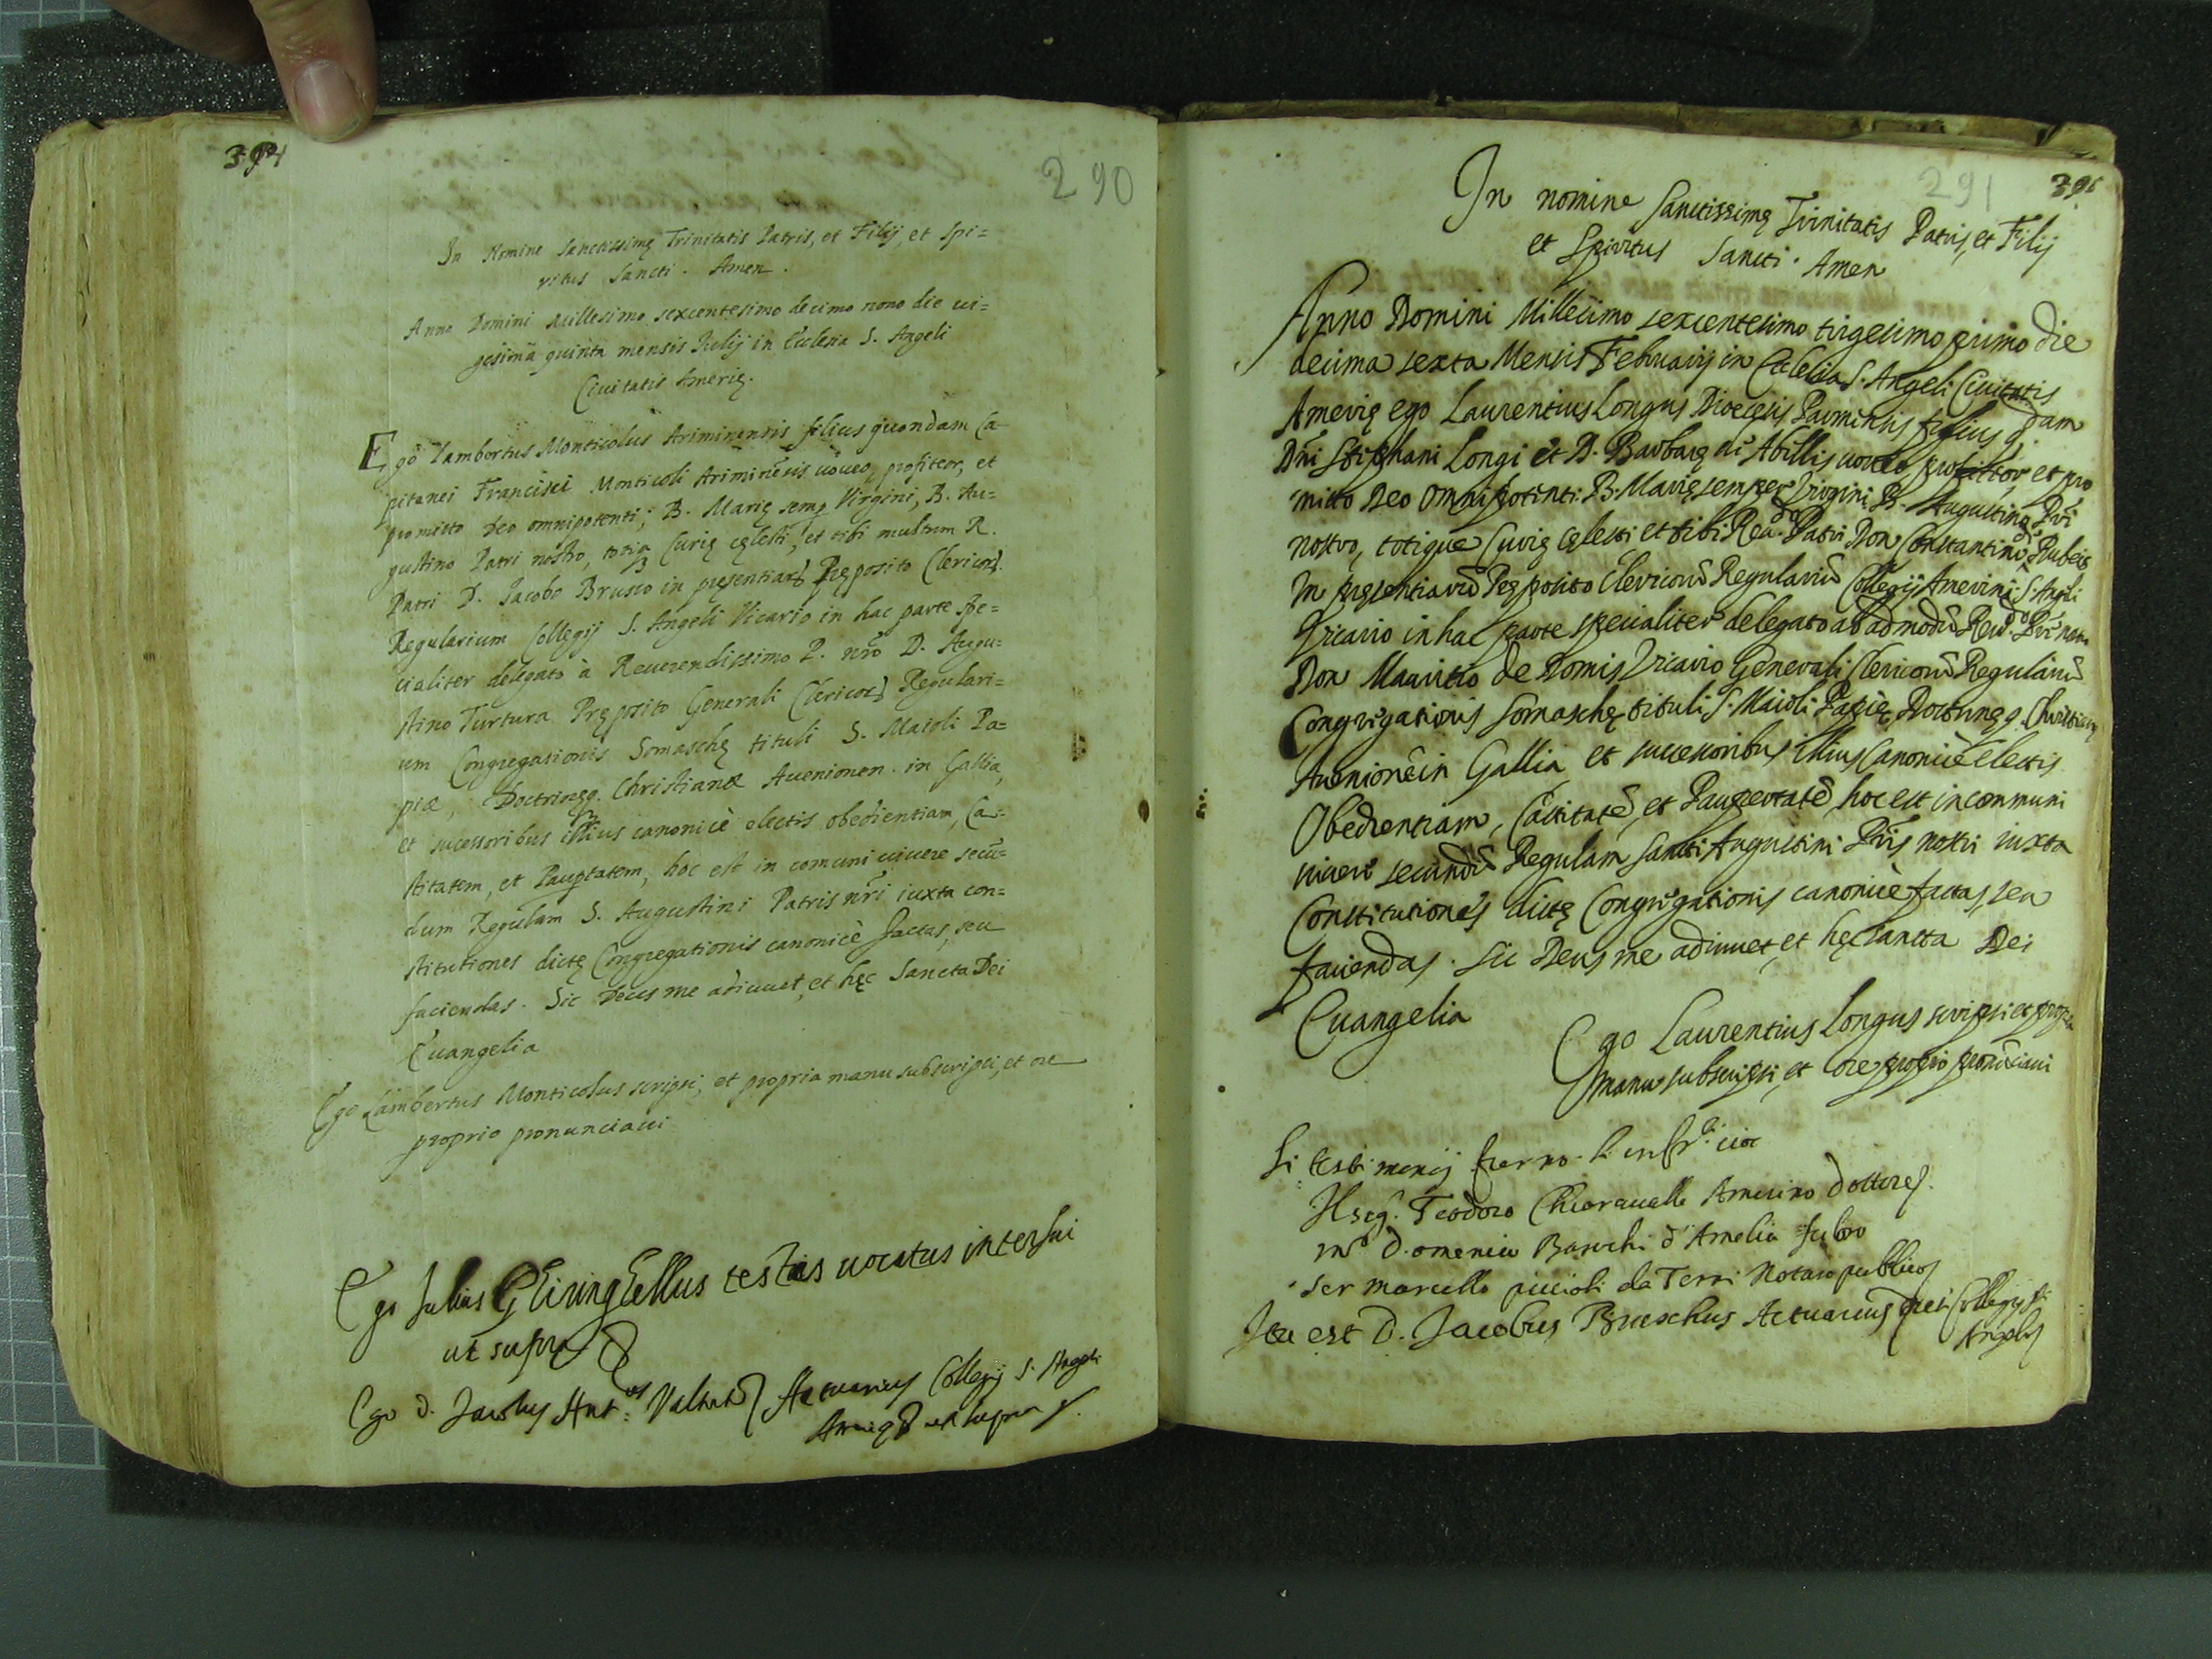 394
290
In Nomine Sanctissimę Trinitatis Patris, et Filij, et Spi=
ritus Sancti. Amen.
Anno Domini Millesimo sexcentesimo decimo nono die ui=
gesima quinta mensis Julij in Ecclesia S. Angeli
Ciuitatis Amerię.
Ego Lambertus Monticolus Ariminensis filius quondam Ca-
pitanei Francisci Monticoli Ariminēsis uoueo, profiteor, et
promitto Deo omnipotenti; B. Marię semp Virgini, B. Au=
gustino Patri nostro, totiq Curię cęlesti, et tibi multum R.
Patri D. Jacobo Brusco in pręsentiarꝝ Pręposito Clericoꝝ.
Regularium Collegij S. Angeli Vicario in hac parte spe=
cialiter delegato à Reuerendissimo P. nr̃o D. Augu=
stino Turtura Pręposito Generali Clericoꝝ Regulari=
um Congregationis Somaschę tituli S. Maioli Pa=
piæ, Doctrinęq. Christianæ Auenionen. in Gallia,
et sucessoribus illius canonicè electis obedientiam, Ca=
stitatem, et Pauptatem, hoc est in comuni uiuere secū=
dum Regulam S. Augustini Patris nr̃i iuxta con=
stitutiones dictę Congregationis canonicè factas, seu
faciendas. Sic Deus me adiuuet, et hęc Sancta Dei
Euangelia
Ego Lambertus Monticolus scripsi, et propria manu subscripsi, et ore
proprio pronunciaui
Ego Julius Ghiringhellus testis uocatus interfui
ut supra
Ego D. Jacobus Ant.us Valtort Actuarius Collegij S. Angeli
Amerię ut supra
291
395
In nomine Sanctissimę Trinitatis Patris, et Filij
et Spiritus Sancti. Amen
Anno Domini Millesimo sexcentesimo trigesimo primo die
decima sexta Mensis Februarij in Ecclesia S. Angeli Ciuitatis
Amerię ego Laurentius Longus Diocesis Parmensis filius q.dam
Dn̄i Stephani Longi et D. Barbarę de Abillis uoueo profiteor et pro
mitto Deo Omnipotenti. B. Marię semper Virgini B. Augustino P̄ri
nostro, totique Curię cęlesti et tibi Reu.do Patri Don Constantino de Rubeis
in pręsentiarū Pręposito Clericorū Regulariū Collegij Amerini S. Angeli
Vicario in hac parte specialiter delegato ab admodū Reu.do P̄ri nostro
Don Mauritio de Domis Vicario Generali Clericorū Regulariū
Congregationis Somaschę tituli S. Maioli Papię Doctrinęq. Christianę
Auenionē in Gallia et successoribus illius Canonicè electis
Obedientiam, Castitatē, et Paupertatē, hoc est in communi
uiuere secundū Regulam Sancti Augustini P̄ris nostri iuxta
Constitutiones dictę Congregationis canonicè factas, seu
faciendas. Sic Deus me adiuuet, et hęc Sancta Dei
Euangelia
Ego Laurentius Longus scripsi et propria
manu subscripsi, et ore proprio pronūciaui
Li testimonij furno li infr.ti cioe
Il sig.r Teodoro Chiaraualle Amerino dottore
m.o Domenico Banchi d'Amelia fabro
Ser Marcello piccioli da Terni Notaro publico
Ita est D. Jacobus Bruschus Actuarius Collegij S.
Angeli